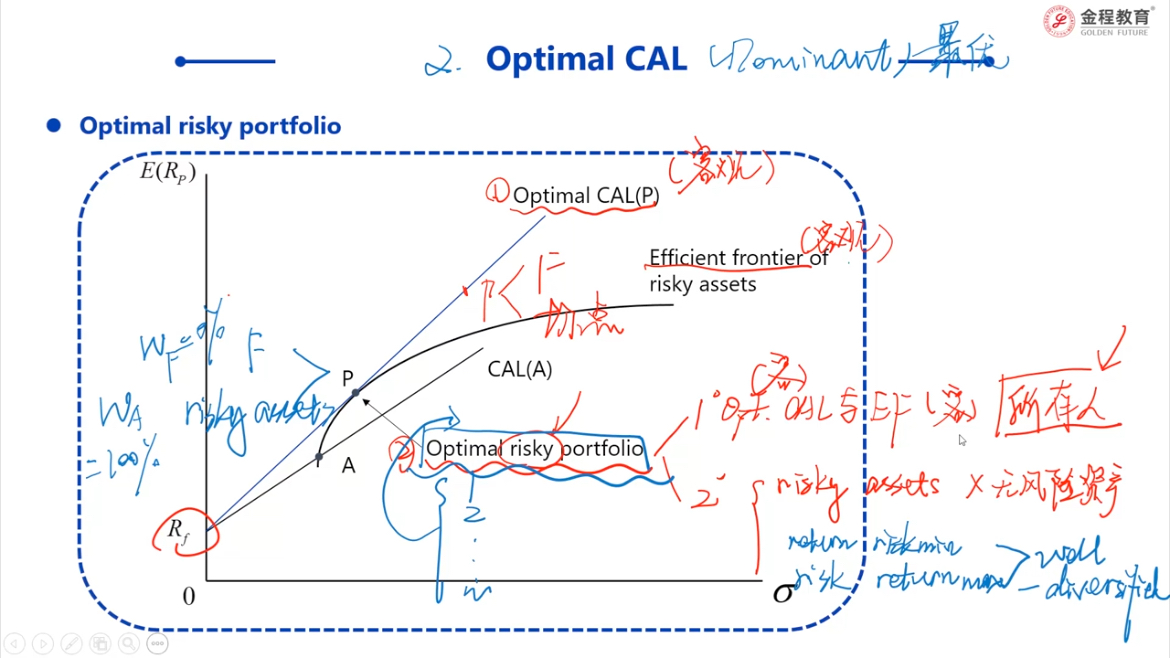 金程教育
GOLDEN FUTURE
2. Optimal CAL (Dominant) 最优
Optimal risky portfolio
E(R_P)
① Optimal CAL(P) (客观)
Efficient frontier of (客观)
risky assets
P < F
切点
W_F = 0% F
CAL(A)
P
W_A risky assets
= 100%
1° Opt. CAL 与 EF (客) 所有人
② Optimal risky portfolio
A
2° risky assets × 无风险资产
1
2
n
R_f
return risk min
well
risk return max
-diversified
0
σ